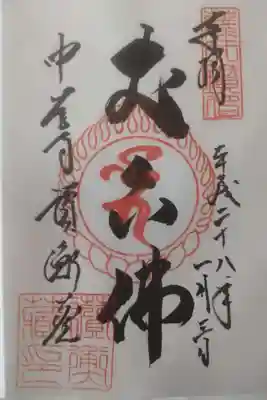 奉拝
平成二十八年
一月三日
丈六佛
中尊寺讃衡蔵